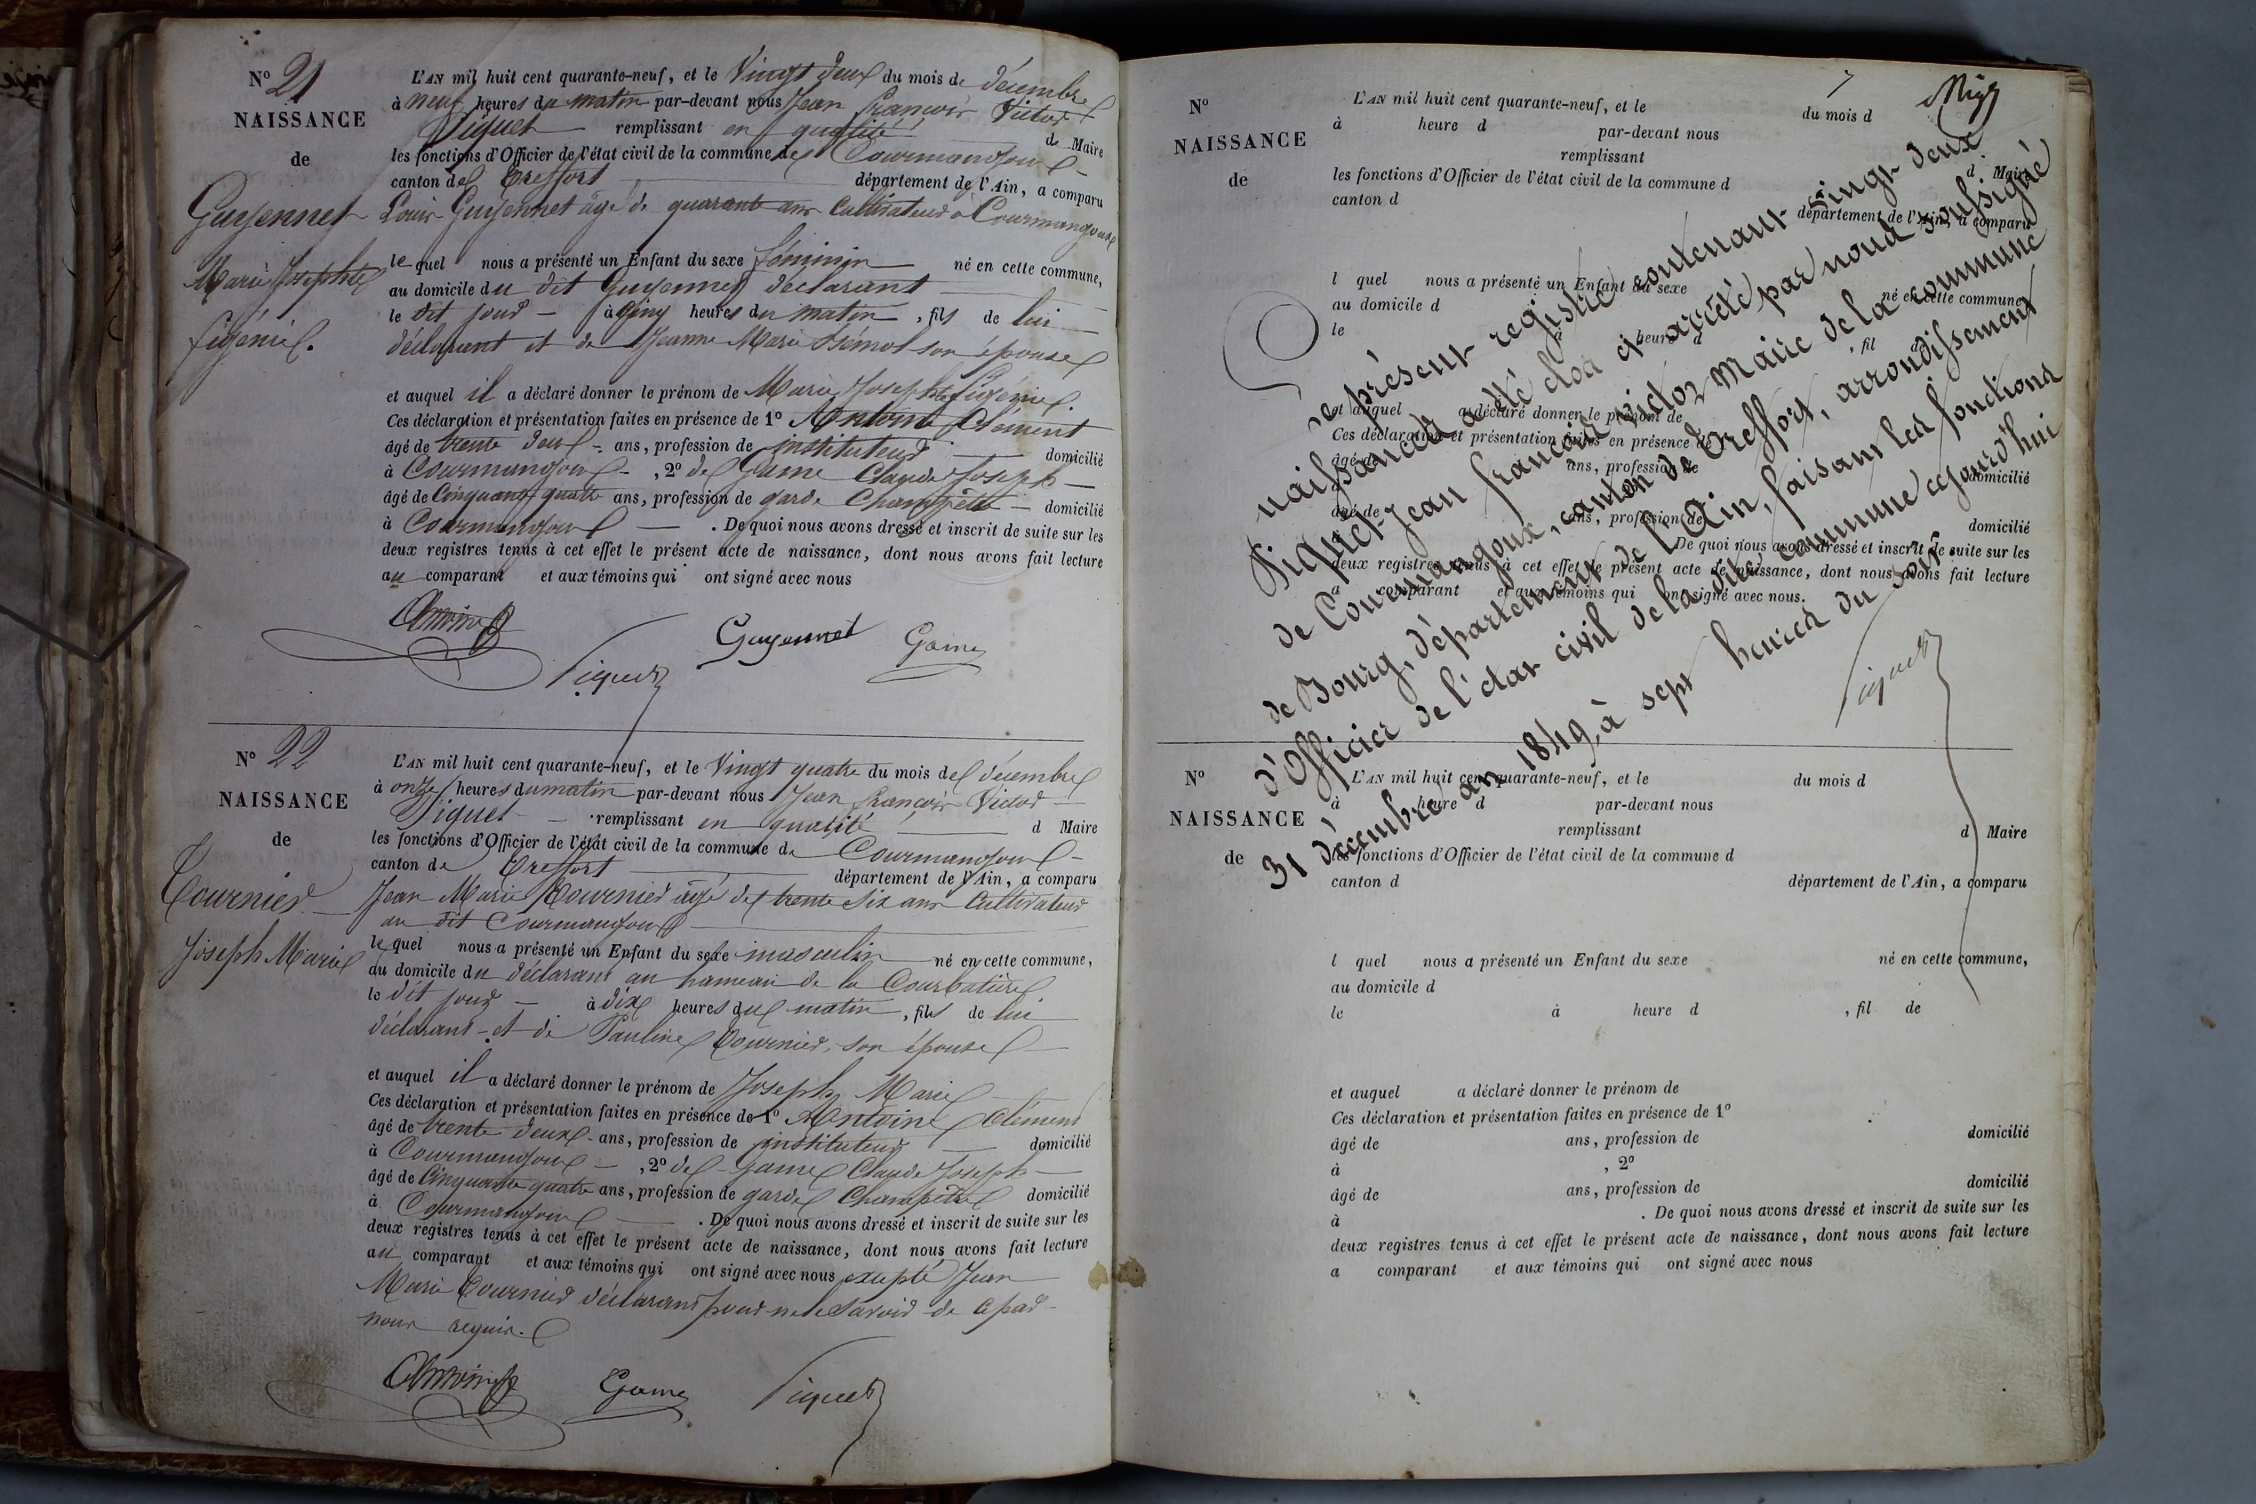 N° 21
NAISSANCE
de
Guyennet
Marie Josephte
Eugénie.
L'AN mil huit cent quarante-neuf, et le Vingt deux du mois de décembre
à neuf heures du matin par-devant nous Jean françois Victor
Piquet remplissant en qualité de Maire
les fonctions d'Officier de l'état civil de la commune de Courmangoux
canton de Treffort département de l'Ain, a comparu
Louis Guyennet âgé de quarante ans Cultivateur à Courmangoux
lequel nous a présenté un Enfant du sexe féminin né en cette commune,
au domicile du dit Guyennet déclarant
le dit jour à cinq heures du matin, fils de lui
déclarant et de Jeanne Marie son épouse
et auquel il a déclaré donner le prénom de Marie Josephte Eugénie.
Ces déclaration et présentation faites en présence de 1° Antoine Clément
âgé de trente deux ans, profession de instituteur domicilié
à Courmangoux, 2° de Game Claude Joseph
âgé de Cinquante quatre ans, profession de garde Champêtre domicilié
à Courmangoux. De quoi nous avons dressé et inscrit de suite sur les
deux registres tenus à cet effet le présent acte de naissance, dont nous avons fait lecture
au comparant et aux témoins qui ont signé avec nous
Antoine Guyennet Game
Piquet
N° 22
NAISSANCE
de
Tournier
Joseph Marie
L'AN mil huit cent quarante-neuf, et le Vingt quatre du mois de décembre
à onze heures du matin par-devant nous Jean françois Victor
Piquet remplissant en qualité d Maire
les fonctions d'Officier de l'état civil de la commune de Courmangoux
canton de Treffort département de l'Ain, a comparu
Jean Marie Tournier âgé de trente six ans Cultivateur
au dit Courmangoux
lequel nous a présenté un Enfant du sexe masculin né en cette commune,
au domicile du déclarant au hameau de la Courbatière
le dit jour à dix heures du matin, fils de lui
déclarant et de Pauline Tournier, son épouse
et auquel il a déclaré donner le prénom de Joseph Marie
Ces déclaration et présentation faites en présence de 1° Antoine Clément
âgé de trente deux ans, profession de instituteur domicilié
à Courmangoux, 2° de Game Claude Joseph
âgé de Cinquante quatre ans, profession de garde Champêtre domicilié
à Courmangoux. De quoi nous avons dressé et inscrit de suite sur les
deux registres tenus à cet effet le présent acte de naissance, dont nous avons fait lecture
au comparant et aux témoins qui ont signé avec nous excepté Jean
Marie Tournier déclarant pour ne le savoir de ce par
nous requis.
Antoine Game Piquet
7
N°
NAISSANCE
de
L'AN mil huit cent quarante-neuf, et le du mois d
à heure d par-devant nous
remplissant d Maire
les fonctions d'Officier de l'état civil de la commune d
canton d département de l'Ain, a comparu
l quel nous a présenté un Enfant du sexe né en cette commune,
au domicile d
le à heure d , fil de
et auquel a déclaré donner le prénom de
Ces déclaration et présentation faites en présence de
âgé de ans, profession de domicilié
âgé de ans, profession de domicilié
De quoi nous avons dressé et inscrit de suite sur les
deux registres tenus à cet effet le présent acte de naissance, dont nous avons fait lecture
a comparant et aux témoins qui ont signé avec nous.
Le présent registre contenant vingt deux
naissances a été clos et arrêté par nous soussigné
Piquet Jean françois victor Maire de la commune
de Courmangoux, canton de Treffort, arrondissement
de Bourg, département de l'Ain, faisant les fonctions
d'Officier de l'état civil de la dite commune cejourd'hui
31 décembre an 1849, à sept heures du soir.
Piquet
N°
NAISSANCE
de
L'AN mil huit cent quarante-neuf, et le du mois d
à heure d par-devant nous
remplissant d Maire
les fonctions d'Officier de l'état civil de la commune d
canton d département de l'Ain, a comparu
l quel nous a présenté un Enfant du sexe né en cette commune,
au domicile d
le à heure d , fil de
et auquel a déclaré donner le prénom de
Ces déclaration et présentation faites en présence de 1°
âgé de ans, profession de domicilié
à , 2°
âgé de ans, profession de domicilié
à . De quoi nous avons dressé et inscrit de suite sur les
deux registres tenus à cet effet le présent acte de naissance, dont nous avons fait lecture
a comparant et aux témoins qui ont signé avec nous